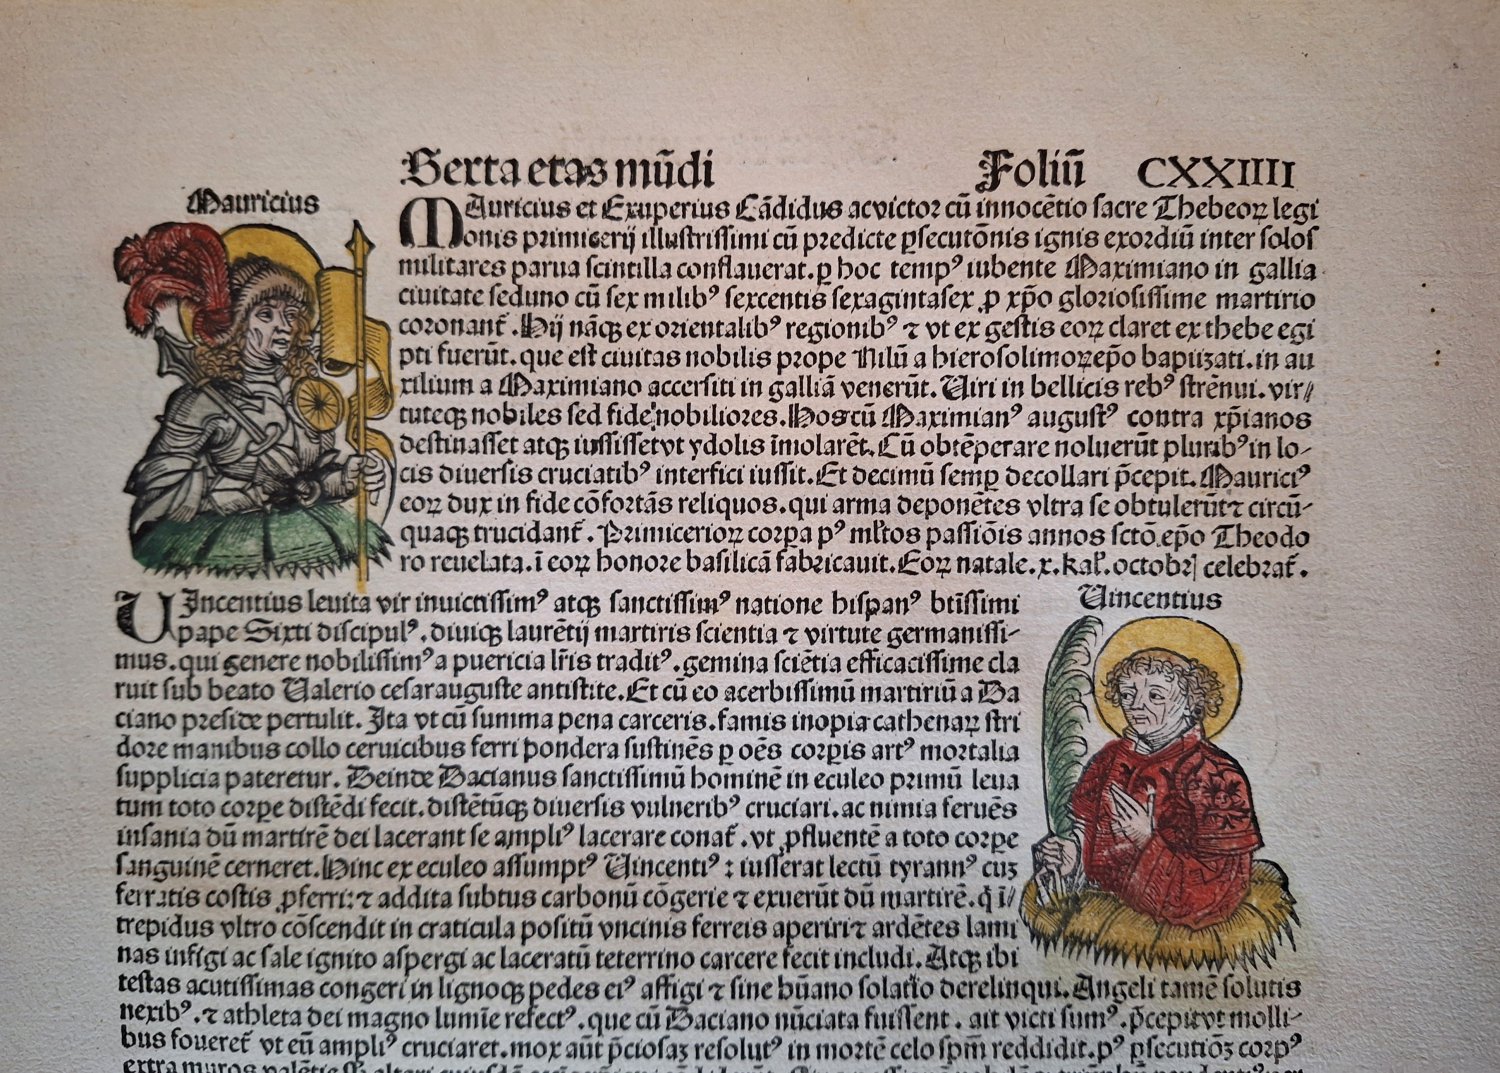 Sexta etas mũdi Foliũ CXXIIII
Mauricius
MAuricius et Exuperius Cãdidus ac victoꝛ cũ innocẽtio sacre Thebeoꝝ legi
onis primicerij illustrissimi cũ predicte ꝑsecutõnis ignis exordiũ inter solos
militares parua scintilla conflauerat. ꝑ hoc tempꝰ iubente Maximiano in gallia
ciuitate seduno cũ sex milibꝰ sexcentis sexagintasex ꝓ xp̃o gloriosissime martirio
coronant̃. Hij nãqꝫ ex orientalibꝰ regionibꝰ ⁊ vt ex gestis eoꝝ claret ex thebe egi
pti fuerũt. que est ciuitas nobilis prope Nilũ a hierosolimoꝝ ep̃o baptizati. in au
xilium a Maximiano accersiti in galliã venerũt. Uiri in bellicis rebꝰ strẽnui. vir⸗
tuteqꝫ nobiles sed fide nobiliores. Hos cũ Maximianꝰ augustꝰ contra xp̃ianos
destinasset atqꝫ iussisset vt ydolis ĩmolarẽt. Cũ obtẽperare noluerũt pluribꝰ in lo-
cis diuersis cruciatibꝰ interfici iussit. Et decimũ semꝑ decollari p̃cepit. Mauriciꝰ
eoꝝ dux in fide cõfortãs reliquos. qui arma deponẽtes vltra se obtulerũt ⁊ circũ-
quaqꝫ trucidant̃. Primicerioꝝ corꝑa pꝰ ml̃tos passiõis annos sctõ ep̃o Theodo
ro reuelata. ĩ eoꝝ honore basilicã fabricauit. Eoꝝ natale. x. kal̃. octobꝛ̃ celebrat̃.
Uincentius
UIncentius leuita vir inuictissimꝰ atqꝫ sanctissimꝰ natione hispanꝰ btĩssimi
pape Sixti discipulꝰ. diuiqꝫ laurẽtij martiris scientia ⁊ virtute germanissi-
mus. qui genere nobilissimꝰ a puericia lr̃is traditꝰ. gemina sciẽtia efficacissime cla
ruit sub beato Ualerio cesarauguste antistite. Et cũ eo acerbissimũ martiriũ a Da
ciano preside pertulit. Ita vt cũ summa pena carceris. famis inopia cathenaꝝ stri
dore manibus collo ceruicibus ferri pondera sustinẽs ꝑ oẽs corꝑis artꝰ mortalia
supplicia pateretur. Deinde Dacianus sanctissimũ hominẽ in eculeo primũ leua
tum toto corꝑe distẽdi fecit. distẽtũqꝫ diuersis vulneribꝰ cruciari. ac nimia feruẽs
insania dũ martirẽ dei lacerant se ampliꝰ lacerare conat̃. vt ꝓfluentẽ a toto corꝑe
sanguinẽ cerneret. Hinc ex eculeo assumptꝰ Uincentiꝰ : iusserat lectũ tyrannꝰ cuꝫ
ferratis costis ꝓferri: ⁊ addita subtus carbonũ cõgerie ⁊ exuerũt dũ martirẽ. q̃ ĩ⸗
trepidus vltro cõscendit in craticula positũ vncinis ferreis aperiri ⁊ ardẽtes lami
nas infigi ac sale ignito aspergi ac laceratũ teterrino carcere fecit includi. Atqꝫ ibi
testas acutissimas congeri in lignoqꝫ pedes eiꝰ affigi ⁊ sine hũano solatio derelinqui. Angeli tamẽ solutis
nexibꝰ. ⁊ athleta dei magno lumĩe refectꝰ. que cũ Daciano nũciata fuissent. ait victi sumꝰ. p̃cepit vt molli-
bus foueret̃ vt eũ ampliꝰ cruciaret. mox aũt p̃ciosaꝫ resolutꝰ in mortẽ celo sp̃m reddidit. pꝰ ꝑsecutiõꝫ corpꝰ
extra muros